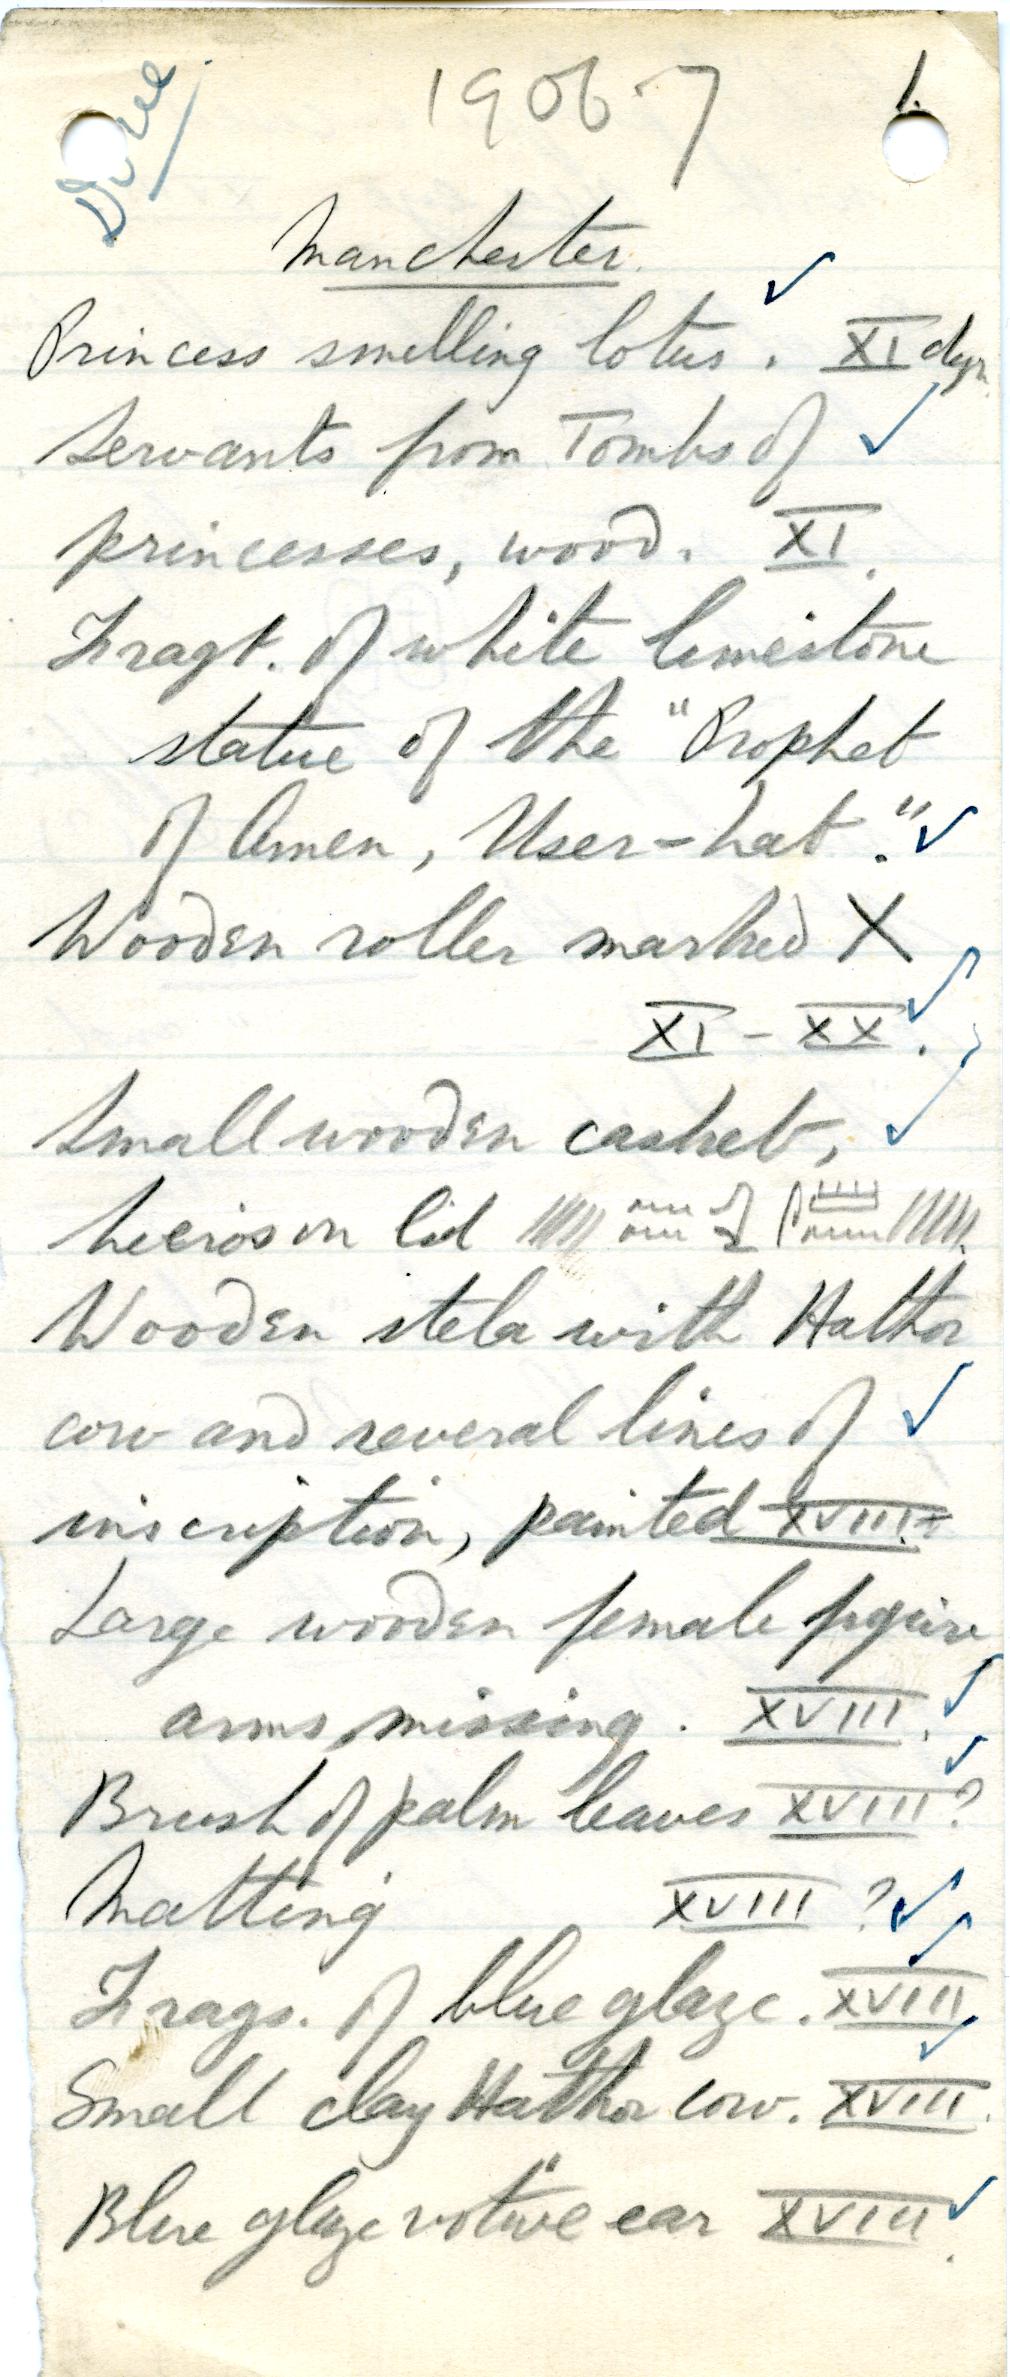 Done
1906-7
1.
Manchester.
Princess smelling lotus. XI dyn.
Servants from Tombs of
princesses, wood. XI.
Fragt. of white limestone
statue of the "Prophet
of Amen, User-hat."
Wooden roller marked X
XI - XX.
Small wooden casket,
on lid
Wooden stela with Hathor
cow and several lines of
inscription, painted XVIII
Large wooden female figure
arms missing. XVIII.
Brush of palm leaves XVIII?
Matting XVIII ?
Frags. of blue glaze. XVIII
Small clay Hathor cow. XVIII.
Blue glaze votive ear XVIII.